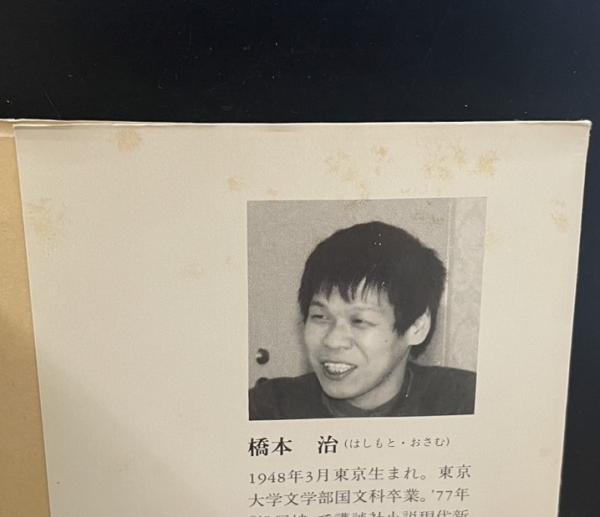 橋本 治(はしもと・おさむ)
1948年3月東京生まれ。東京
大学文学部国文科卒業。'77年
講談社小説現代新